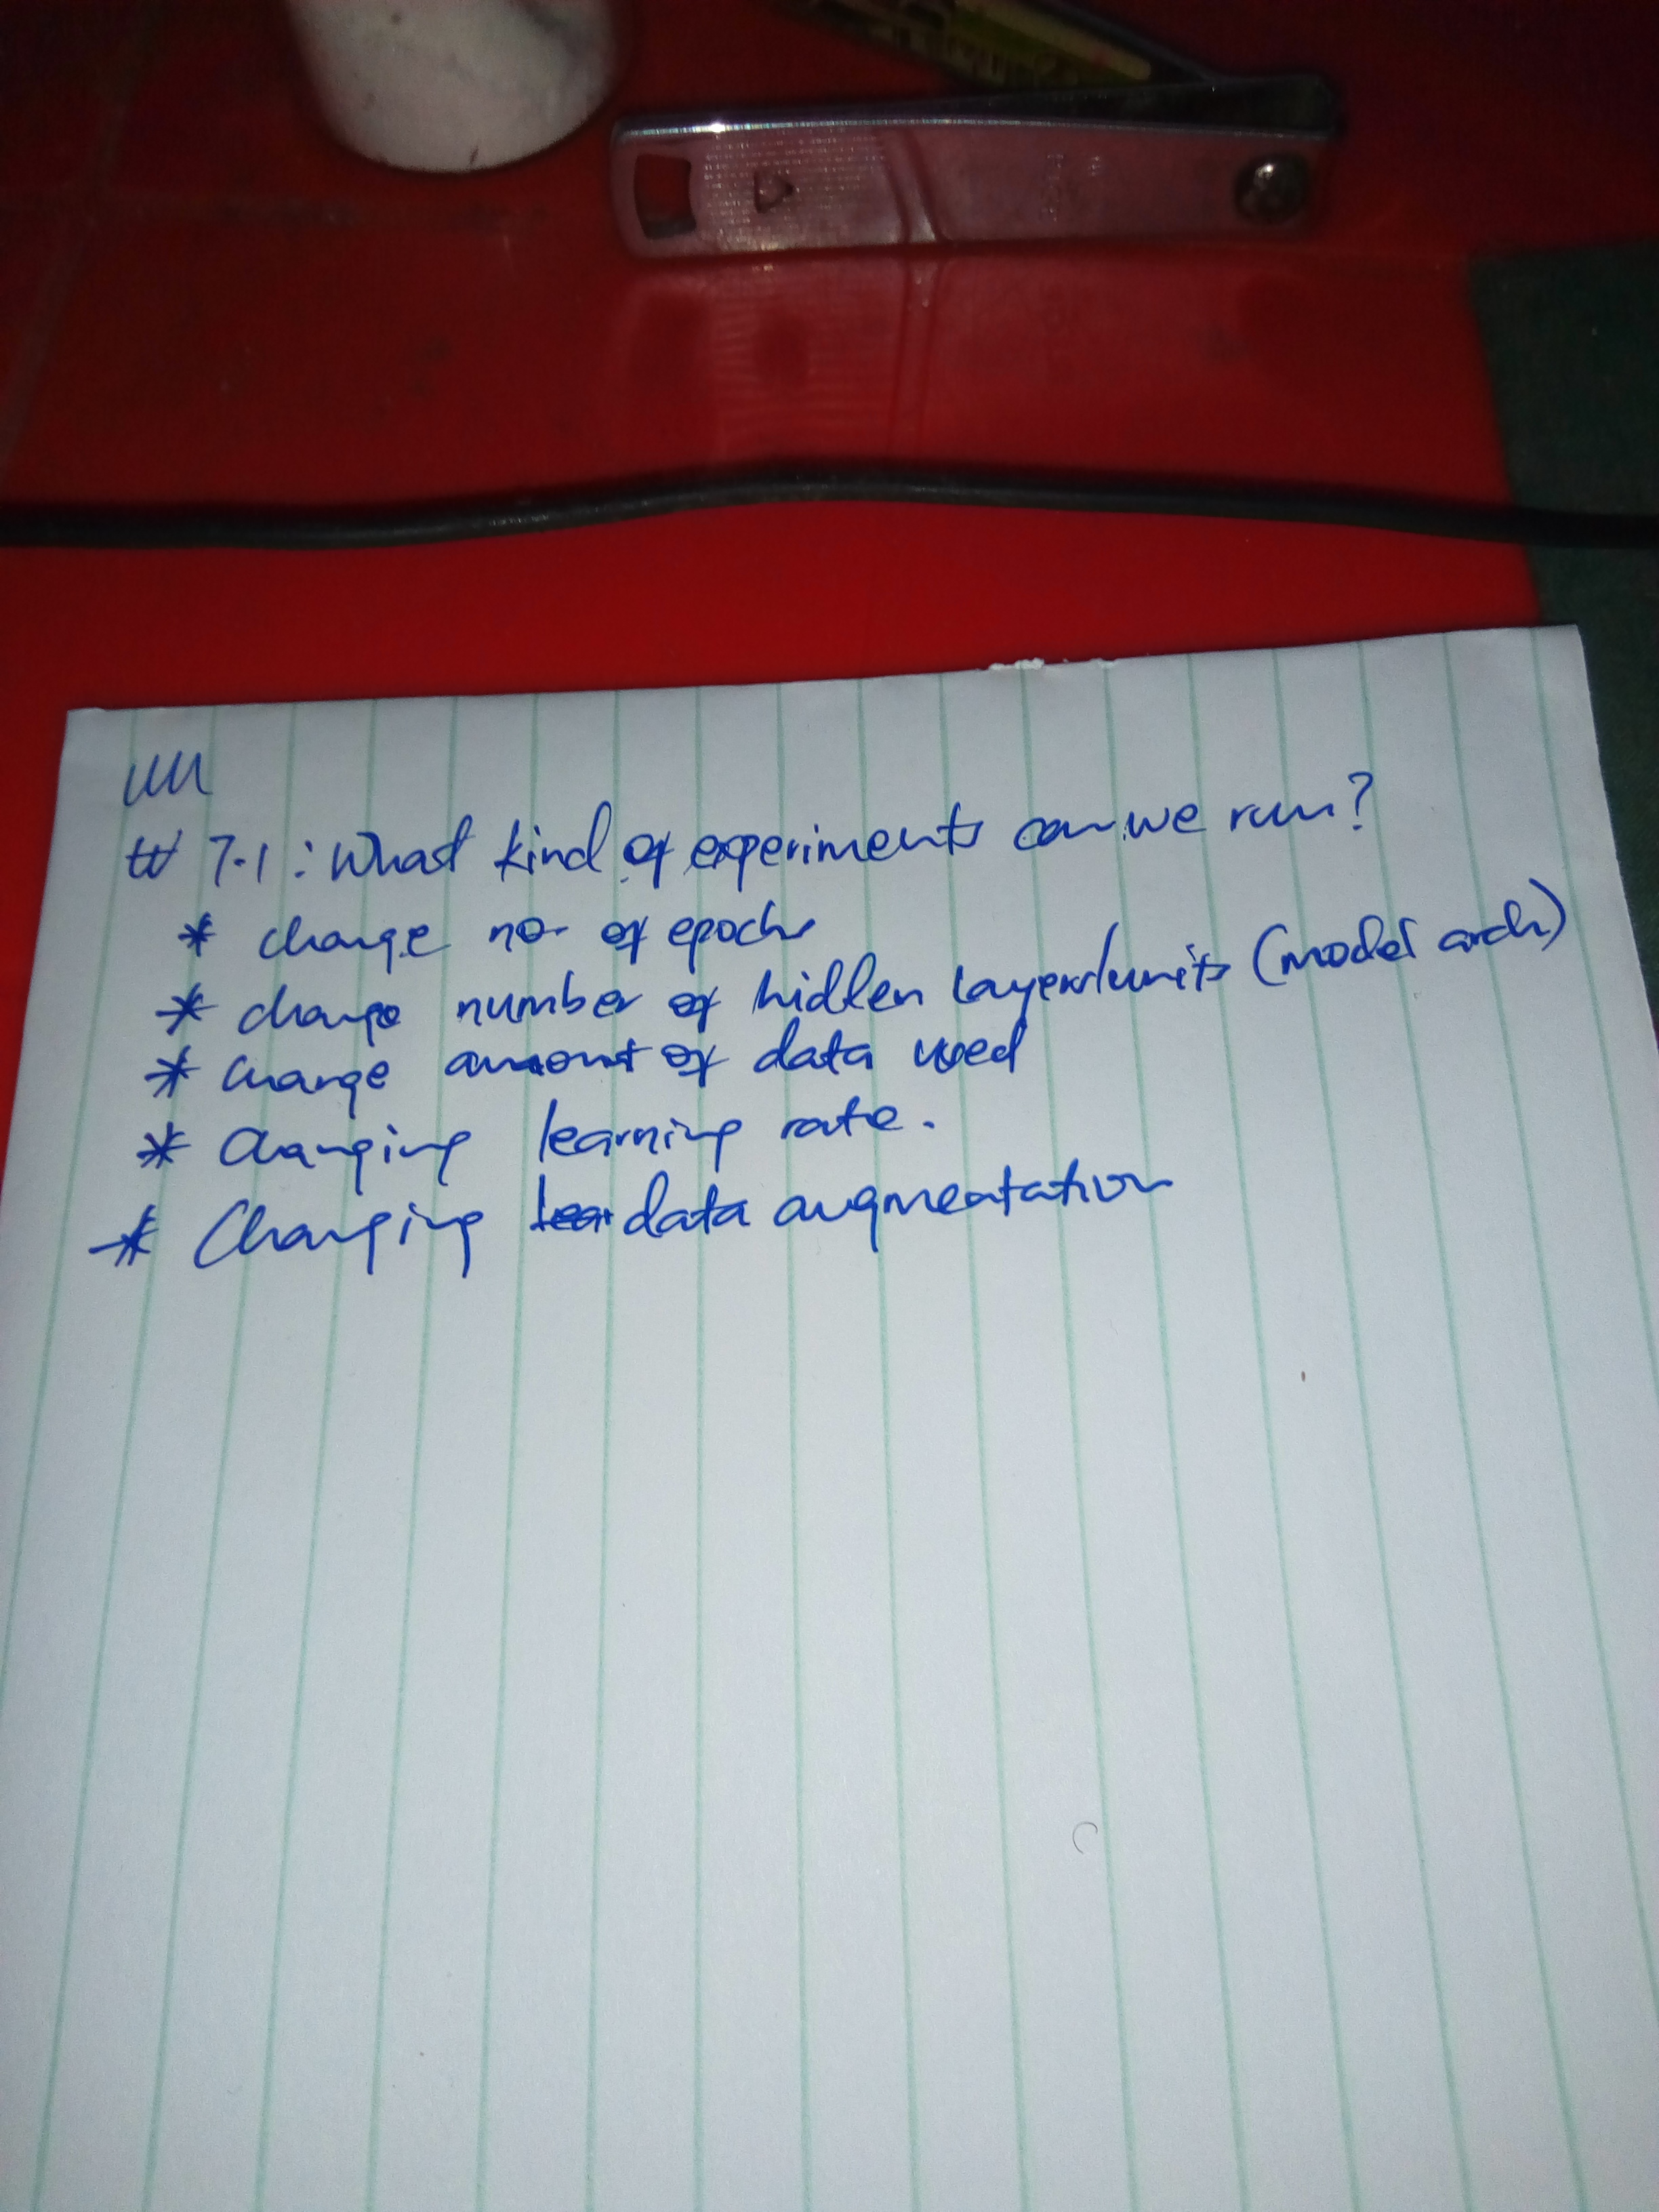 # 7.1: What kind of experiments can we run?
* change no. of epochs
* change number of hidden layers/units (model arch)
* change amount of data used
* Changing learning rate.
* Changing data augmentation